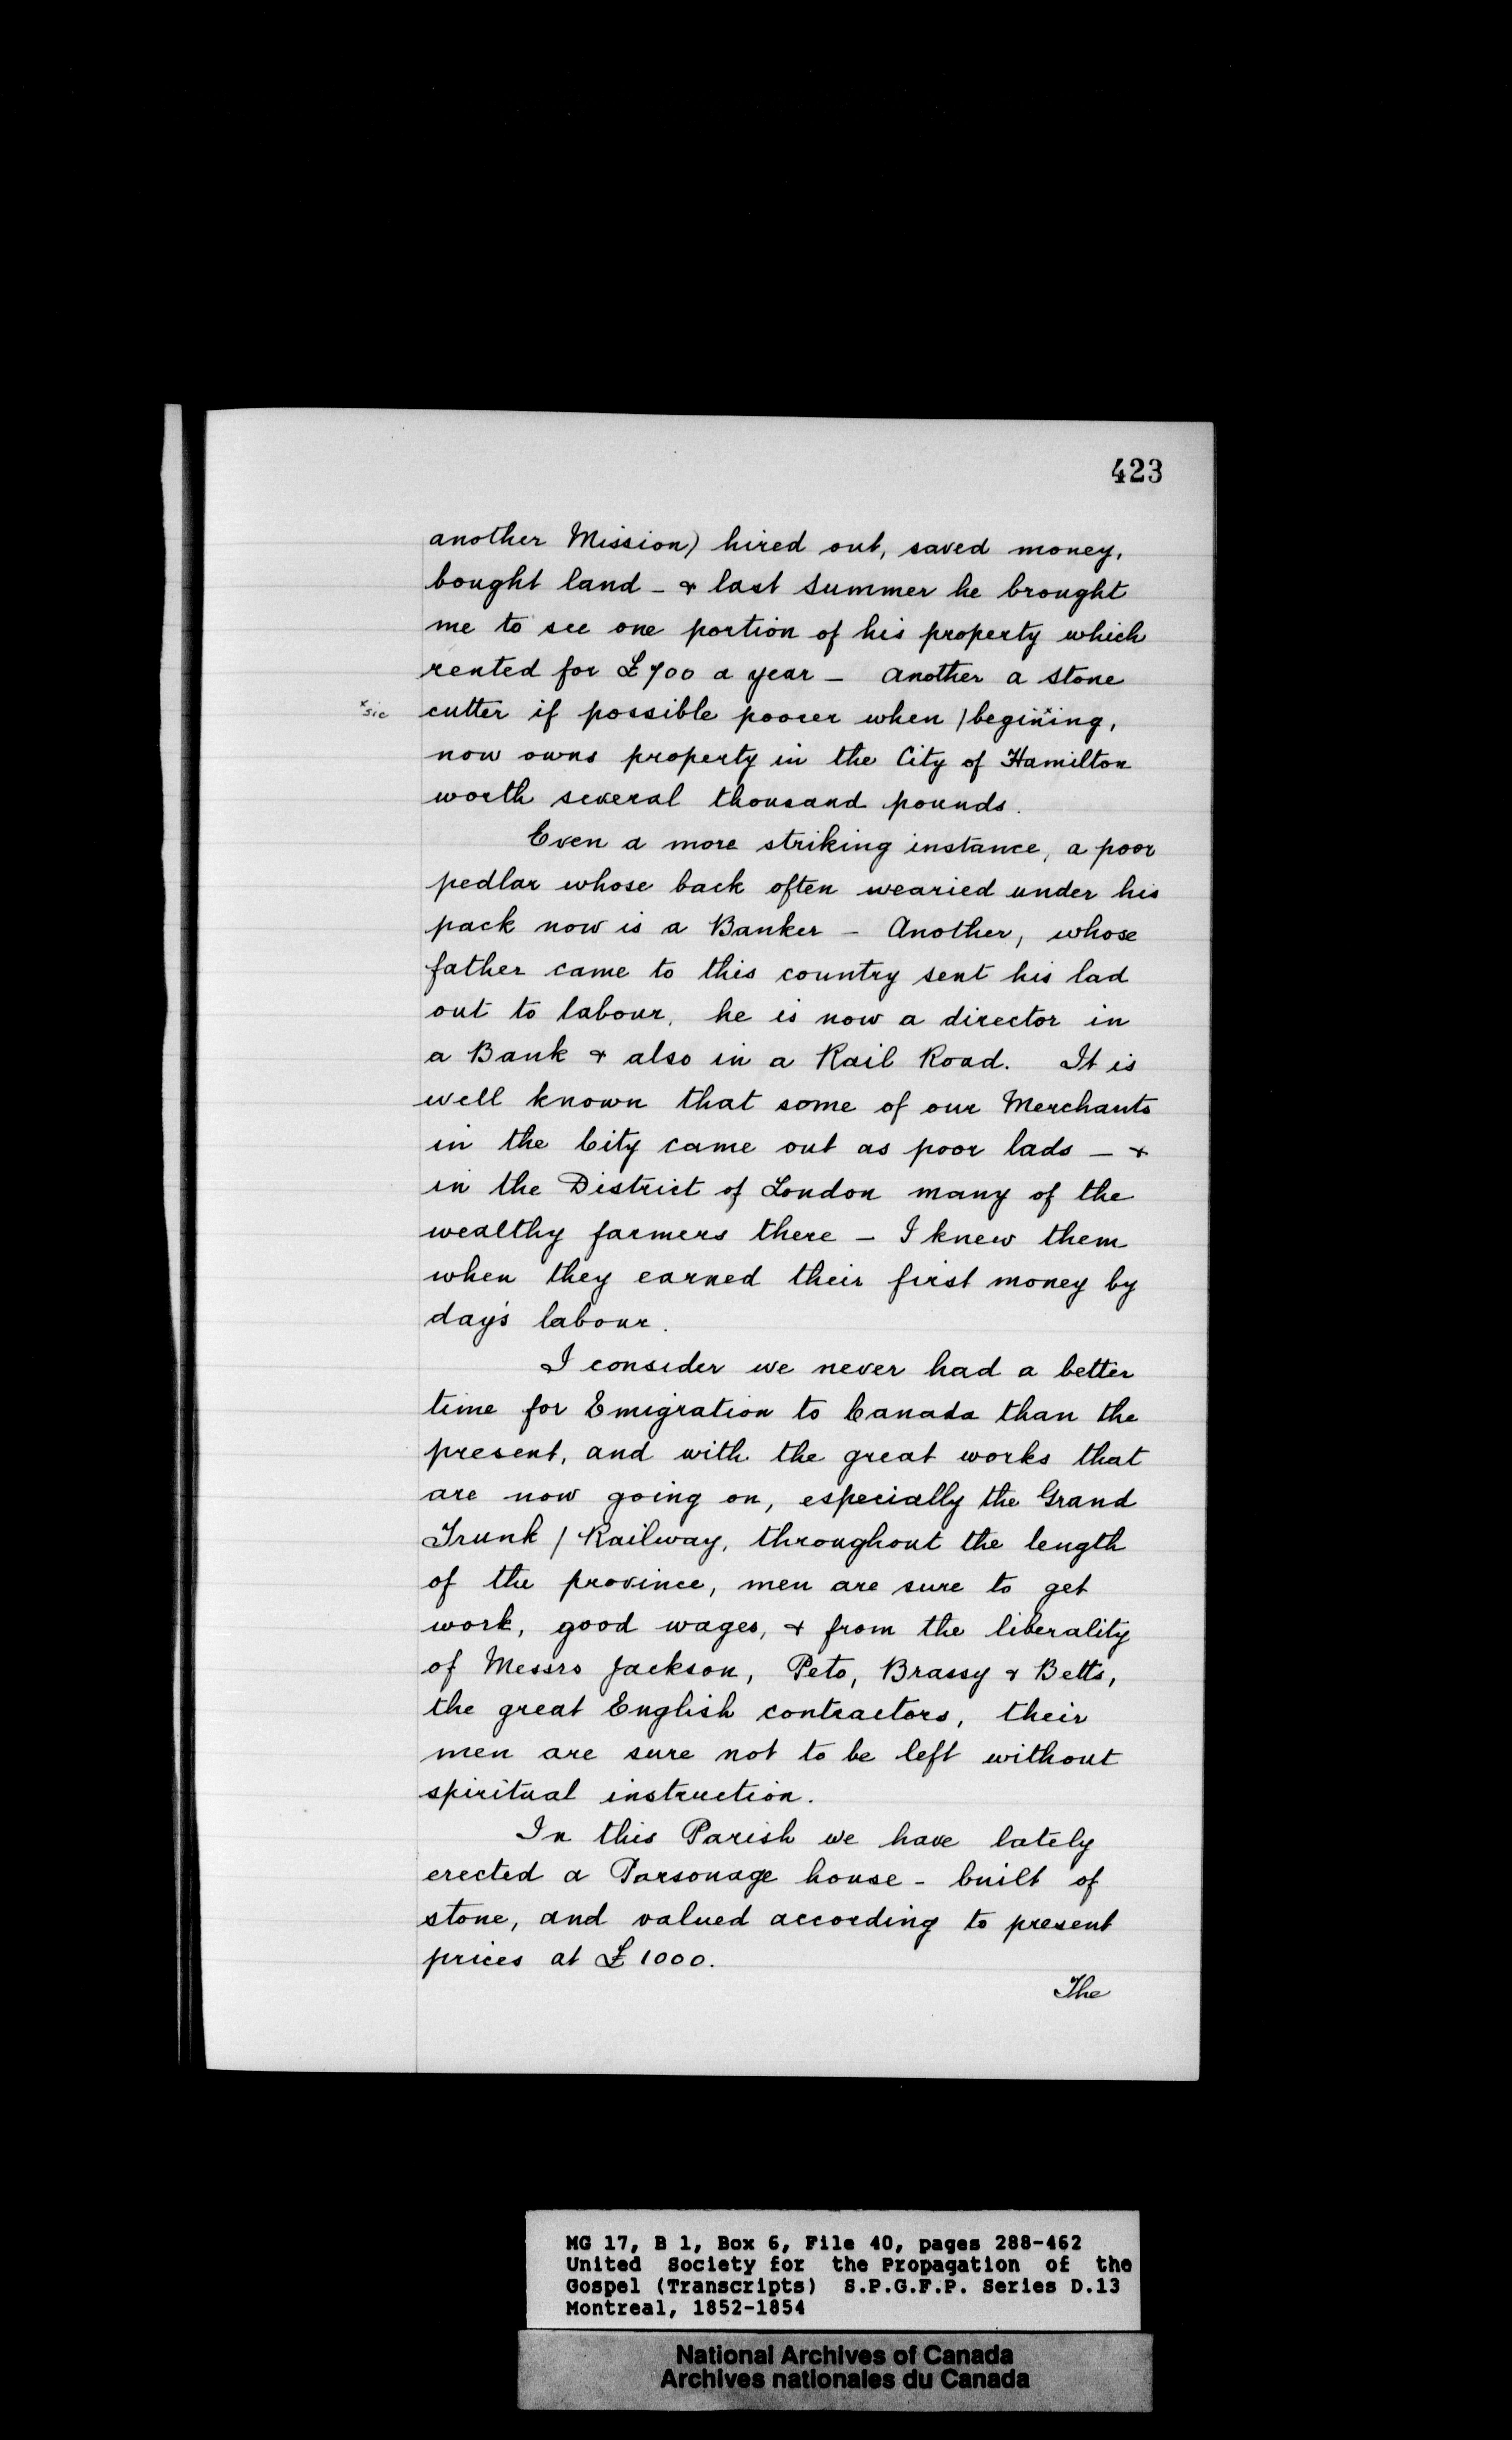 423
another Mission) hired out, saved money,
bought land - & last summer he brought
me to see one portion of his property which
rented for £700 a year - Another a stone
*sic cutter if possible poorer when /begin*ing,
now owns property in the City of Hamilton
worth several thousand pounds.
Even a more striking instance, a poor
pedlar whose back often wearied under his
pack now is a Banker - Another, whose
father came to this country sent his lad
out to labour, he is now a director in
a Bank & also in a Rail Road. It is
well known that some of our Merchants
in the City came out as poor lads - &
in the District of London many of the
wealthy farmers there - I knew them
when they earned their first money by
day's labour.
I consider we never had a better
time for Emigration to Canada than the
present, and with the great works that
are now going on, especially the Grand
Trunk / Railway, throughout the length
of the province, men are sure to get
work, good wages, & from the liberality
of Messrs Jackson, Peto, Brassy & Betts,
the great English contractors, their
men are sure not to be left without
spiritual instruction.
In this Parish we have lately
erected a Parsonage house - built of
stone, and valued according to present
prices at £1000.
The
MG 17, B 1, Box 6, File 40, pages 288-462
United Society for the Propagation of the
Gospel (Transcripts) S.P.G.F.P. Series D.13
Montreal, 1852-1854
National Archives of Canada
Archives nationales du Canada